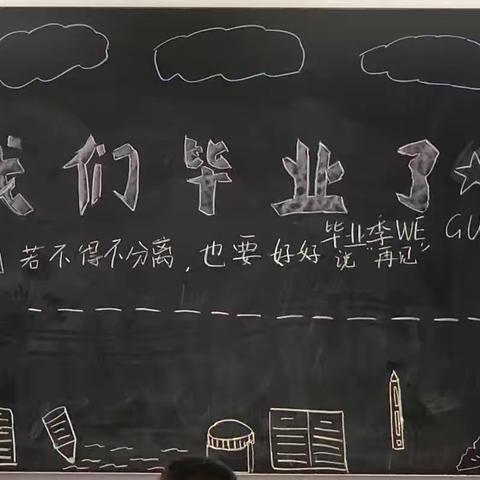 我们毕业了
毕业季WE GU
若不得不分离,也要好好说“再见”